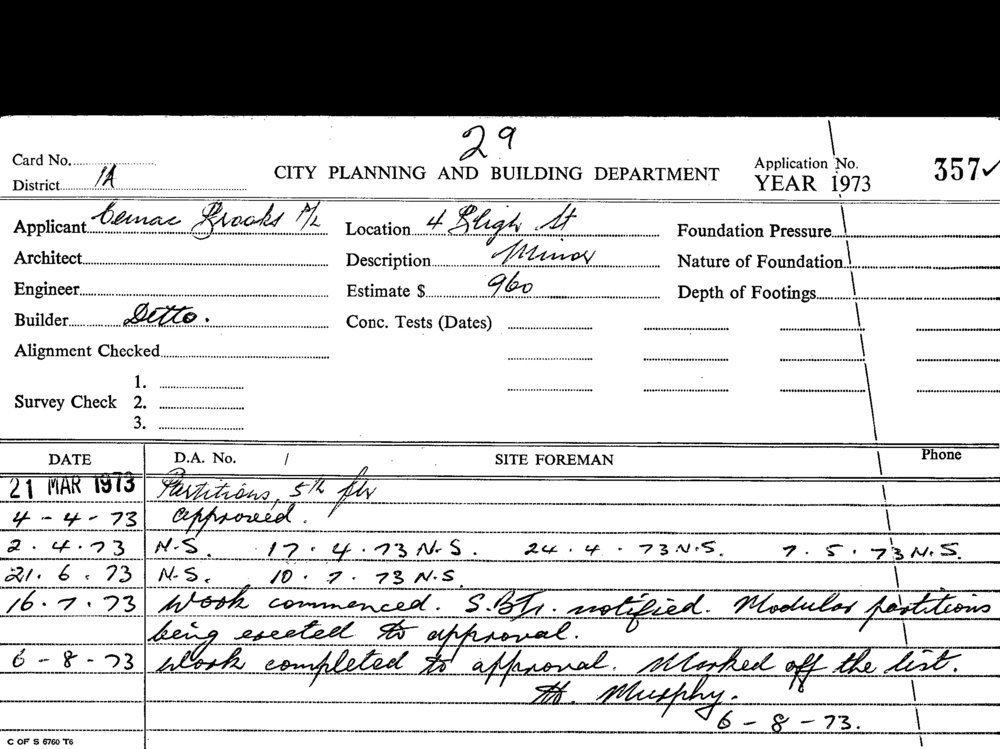 29
Card No.
CITY PLANNING AND BUILDING DEPARTMENT
Application No. 357✓
District 1A
YEAR 1973
Applicant Cemac Brooks P/L Location 4 Bligh St Foundation Pressure
Architect Description Minor Nature of Foundation
Engineer Estimate $ 960 Depth of Footings
Builder Ditto. Conc. Tests (Dates)
Alignment Checked
1.
Survey Check 2.
3.
DATE D.A. No. / SITE FOREMAN Phone
21 MAR 1973 Partitions, 5th flr
4-4-73 approved.
2.4.73 N.S. 17.4.73 N.S. 24.4.73 N.S. 7.5.73 N.S.
21.6.73 N.S. 10.7.73 N.S.
16.7.73 Work commenced. notified. Modular partitions
being erected to approval.
6-8-73 Work completed to approval. Marked off the list.
H. Murphy.
6-8-73.
C OF S 6760 T6